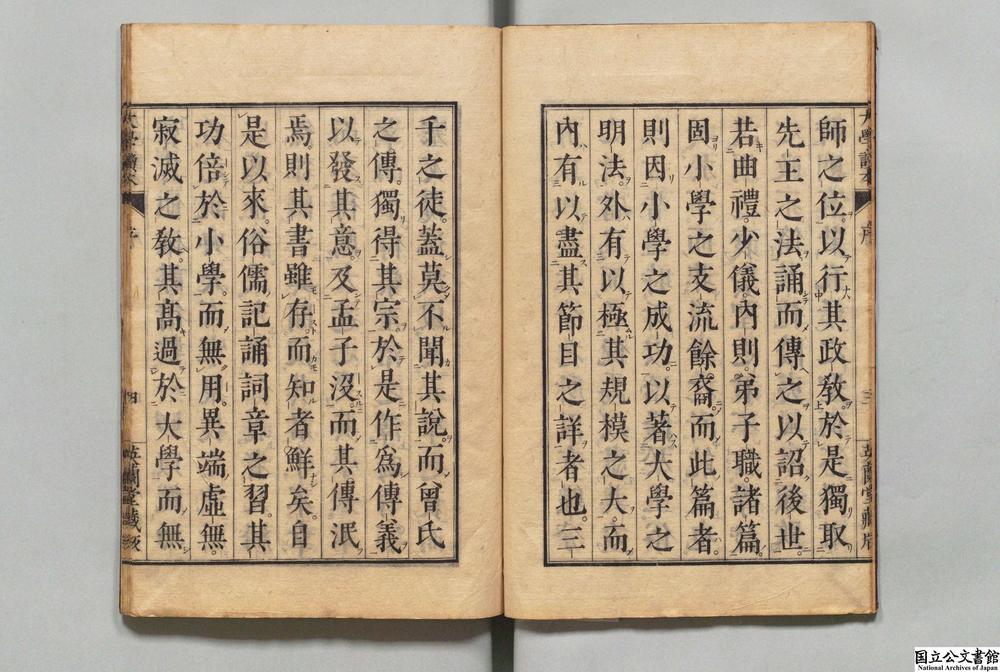 師之位。以行其政教。於是獨取
先王之法。誦而傳之。以詔後世。
若曲禮。少儀。內則。弟子職。諸篇。
固小學之支流餘裔。而此篇者。
則因小學之成功。以著大學之
明法。外有以極其規模之大。而
內有以盡其節目之詳者也。三
千之徒。蓋莫不聞其說。而曾氏
之傳。獨得其宗。於是作爲傳義
以發其意。及孟子沒。而其傳泯
焉。則其書雖存。而知者鮮矣。自
是以來。俗儒記誦詞章之習。其
功倍於小學。而無用。異端虛無。
寂滅之敎。其高過於大學而無
国立公文書館
National Archives of Japan